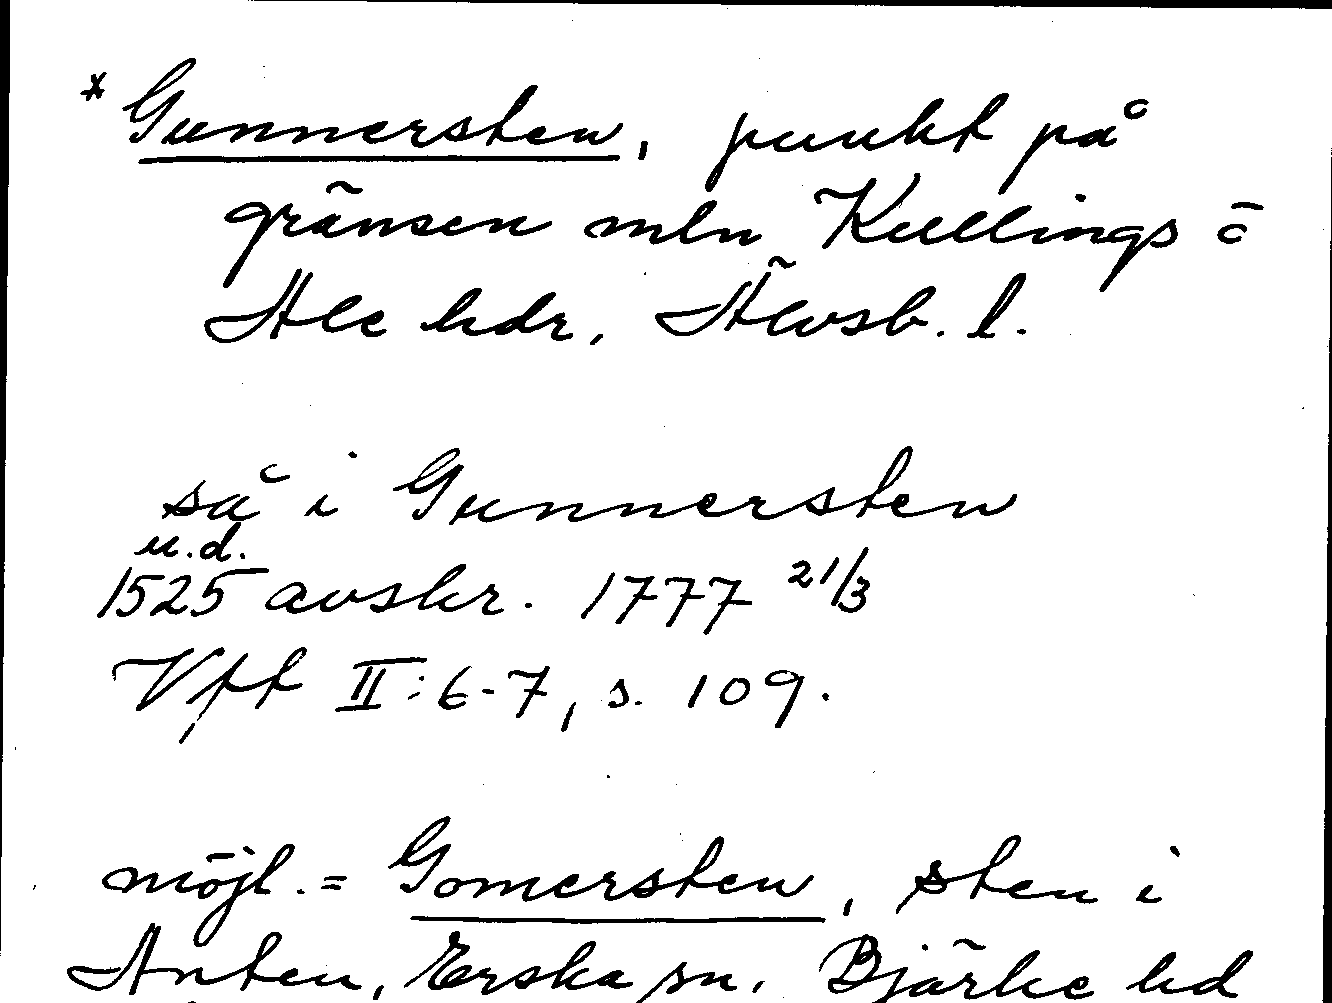 * Gunnersten, punkt på
gränsen mln Kullings ö
Ale hdr, Älvsb. l.
så i Gunnersten
u.d.
1525 avskr. 1777 21/3
Vft II:6-7, s. 109.
möjl. = Gomersten, sten i
Anten, Erska sn, Bjärke hd